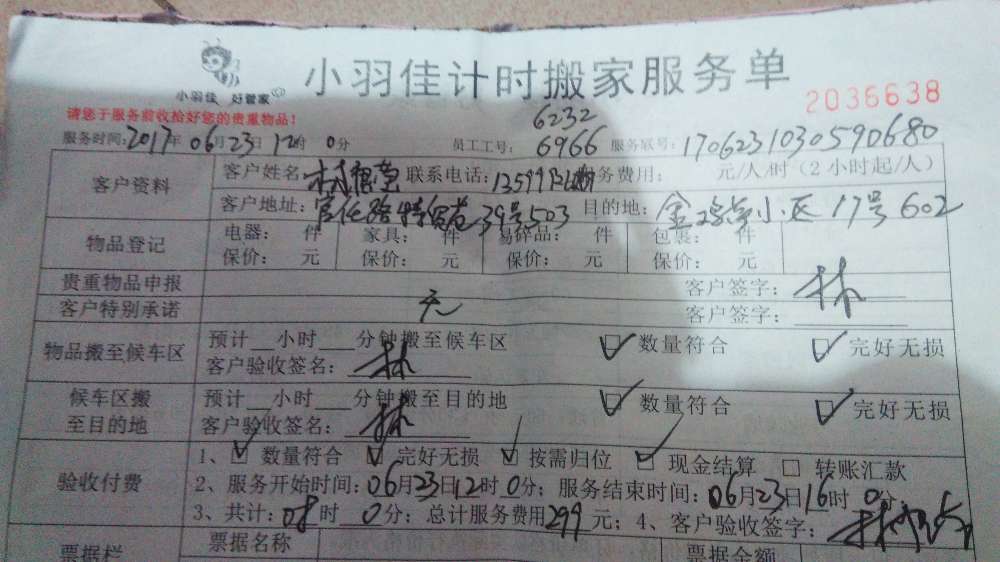 小羽佳计时搬家服务单
小羽佳 好管家
2036638
请您于服务前收拾好您的贵重物品!
服务时间:2017年06月23日12时0分 员工工号: 6232 6966 服务账号: 1706231030590680
客户资料
客户姓名: 联系电话:13599 务费用: 元/人/时(2小时起/人)
客户地址: 39号503 目的地: 金鸡亭小区17号602
物品登记
电器: 件 家具: 件 易碎品: 件 包裹: 件
保价: 元 保价: 元 保价: 元 保价: 元
贵重物品申报 客户签字: 林
客户特别承诺 无 客户签字:
物品搬至候车区
预计 小时 分钟搬至候车区 ☑数量符合 ☑完好无损
客户验收签名: 林
候车区搬至目的地
预计 小时 分钟搬至目的地 ☑数量符合 ☑完好无损
客户验收签名: 林
验收付费
1、☑数量符合 ☑完好无损 ☑按需归位 ☑现金结算 □转账汇款
2、服务开始时间:06月23日12时0分; 服务结束时间:06月23日16时0分;
3、共计:08时0分; 总计服务费用299元; 4、客户验收签字: 林
票据栏 票据名称 票据金额